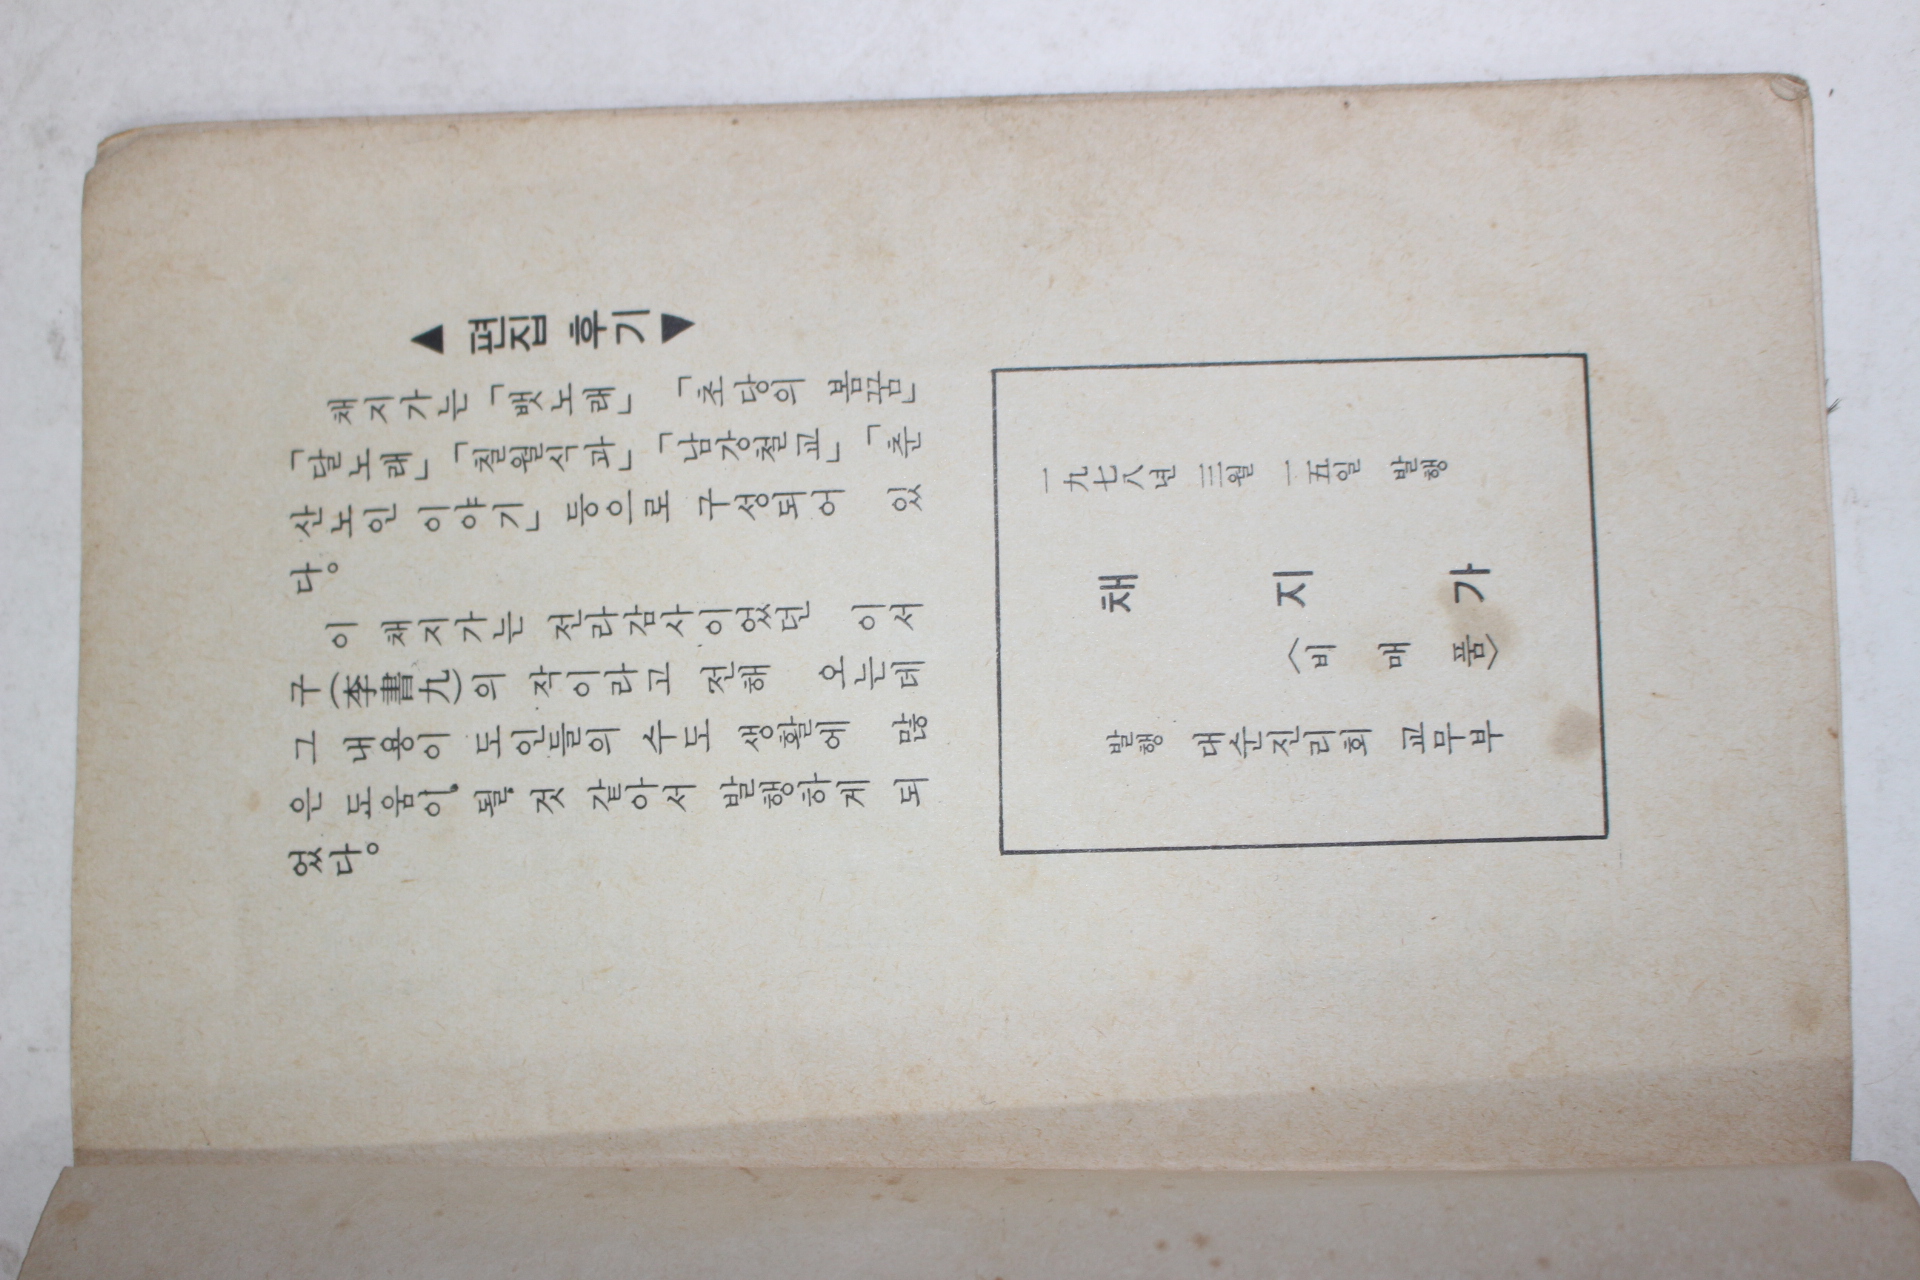 ▲ 편집 후기 ▼
채지가는「뱃노래」 「초당의 봄꿈」
「달노래」「칠월식과」「남강철교」「춘
산노인 이야기」 등으로 구성되어 있
다。
이 채지가는 전라감사이었던 이서
구(李書九)의 작이라고 전해 오는데
그 내용이 도인들의 수도 생활에 많
은 도움이 될 것 같아서 발행하게 되
었다。
一九七八년 三월 一五일 발행
채 지 가
〈비 매 품〉
발행 대순진리회 교무부